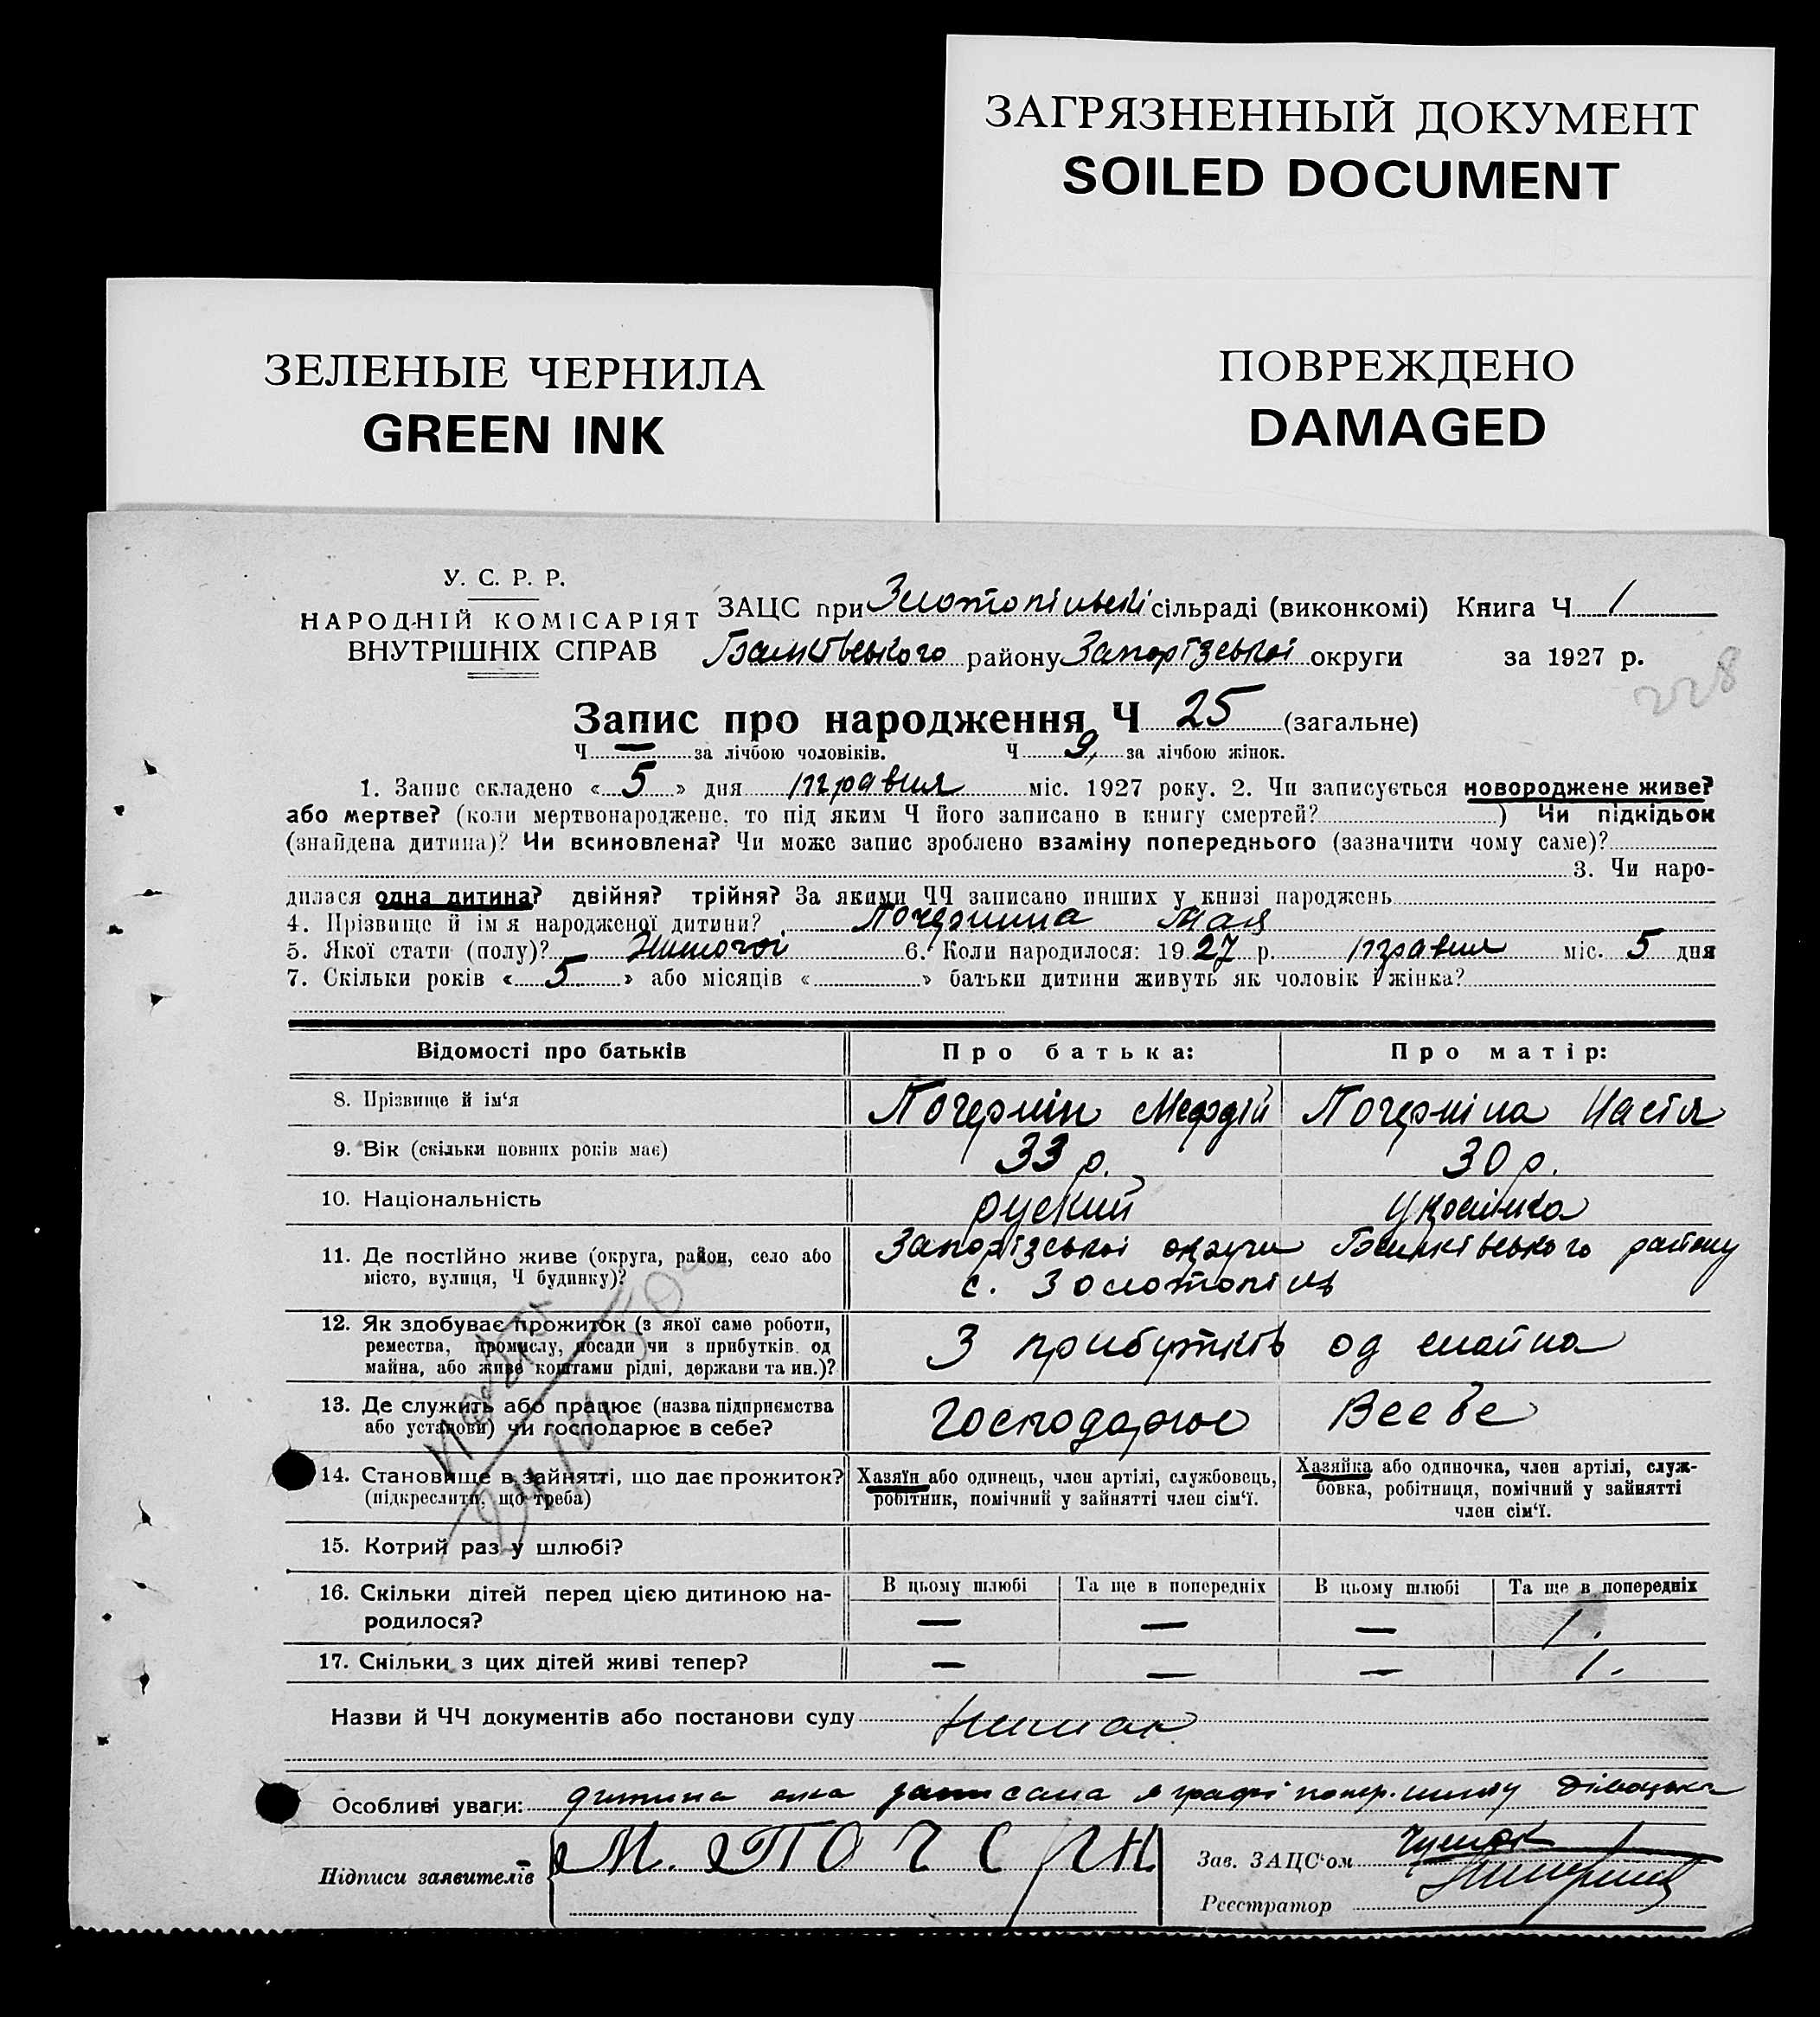 ЗАГРЯЗНЕННЫЙ ДОКУМЕНТ
SOILED DOCUMENT
ЗЕЛЕНЫЕ ЧЕРНИЛА
GREEN INK
ПОВРЕЖДЕНО
DAMAGED
У. С. Р. Р.
НАРОДНІЙ КОМІСАРІЯТ
ВНУТРІШНІХ СПРАВ
ЗАЦС при сільраді (виконкомі) Книга Ч. 1
району Запорізської округи за 1927 р.
228
Запис про народження Ч 25 (загальне)
Ч — за лічбою чоловіків. Ч 9, за лічбою жінок.
1. Запис складено « 5 » дня травня міс. 1927 року. 2. Чи записується новороджене живе?
або мертве? (коли мертвонароджене, то під яким Ч його записано в книгу смертей? ) Чи підкідьок
(знайдена дитина)? Чи всиновлена? Чи може запис зроблено взаміну попереднього (зазначити чому саме)?
3. Чи наро-
дилася одна дитина? двійня? трійня? За якими ЧЧ записано инших у книзі народжень
4. Прізвище й ім'я народженої дитини? Почерніна Мая
5. Якої стати (полу)? Жиночої 6. Коли народилося: 1927 р. травня міс. 5 дня
7. Скільки років « 5 » або місяців « » батьки дитини живуть як чоловік і жінка?
Відомості про батьків Про батька: Про матір:
8. Прізвище й ім'я Почернін Мефдій Почерніна Настя
9. Вік (скільки повних років має) 33 р. 30 р.
10. Національність руский українка
11. Де постійно живе (округа, район, село або Запорізської округи району
місто, вулиця, Ч будинку)? с. Золотопіль
12. Як здобуває прожиток (з якої саме роботи,
ремества, промислу, посади чи з прибутків од З прибутків од майна
майна, або живе коштами рідні, держави та ин.)?
13. Де служить або працює (назва підприємства Господарює В себе
або установи) чи господарює в себе?
14. Становище в зайнятті, що дає прожиток? Хазяїн або одинець, член артілі, службовець, Хазяйка або одиночка, член артілі, служ-
(підкреслити, що треба) робітник, помічний у зайнятті член сім'ї. бовка, робітниця, помічний у зайнятті
член сім'ї.
15. Котрий раз у шлюбі?
16. Скільки дітей перед цією дитиною на- В цьому шлюбі Та ще в попередніх В цьому шлюбі Та ще в попередніх
родилося? — — — 1.
17. Скільки з цих дітей живі тепер? — — — 1.
Назви й ЧЧ документів або постанови суду Немає
Особливі уваги: дитина яка записана в графі попер. шлюбу дівоцька
Підписи заявителів М. ПОЧЕРН
Зав. ЗАЦС'ом
Реєстратор